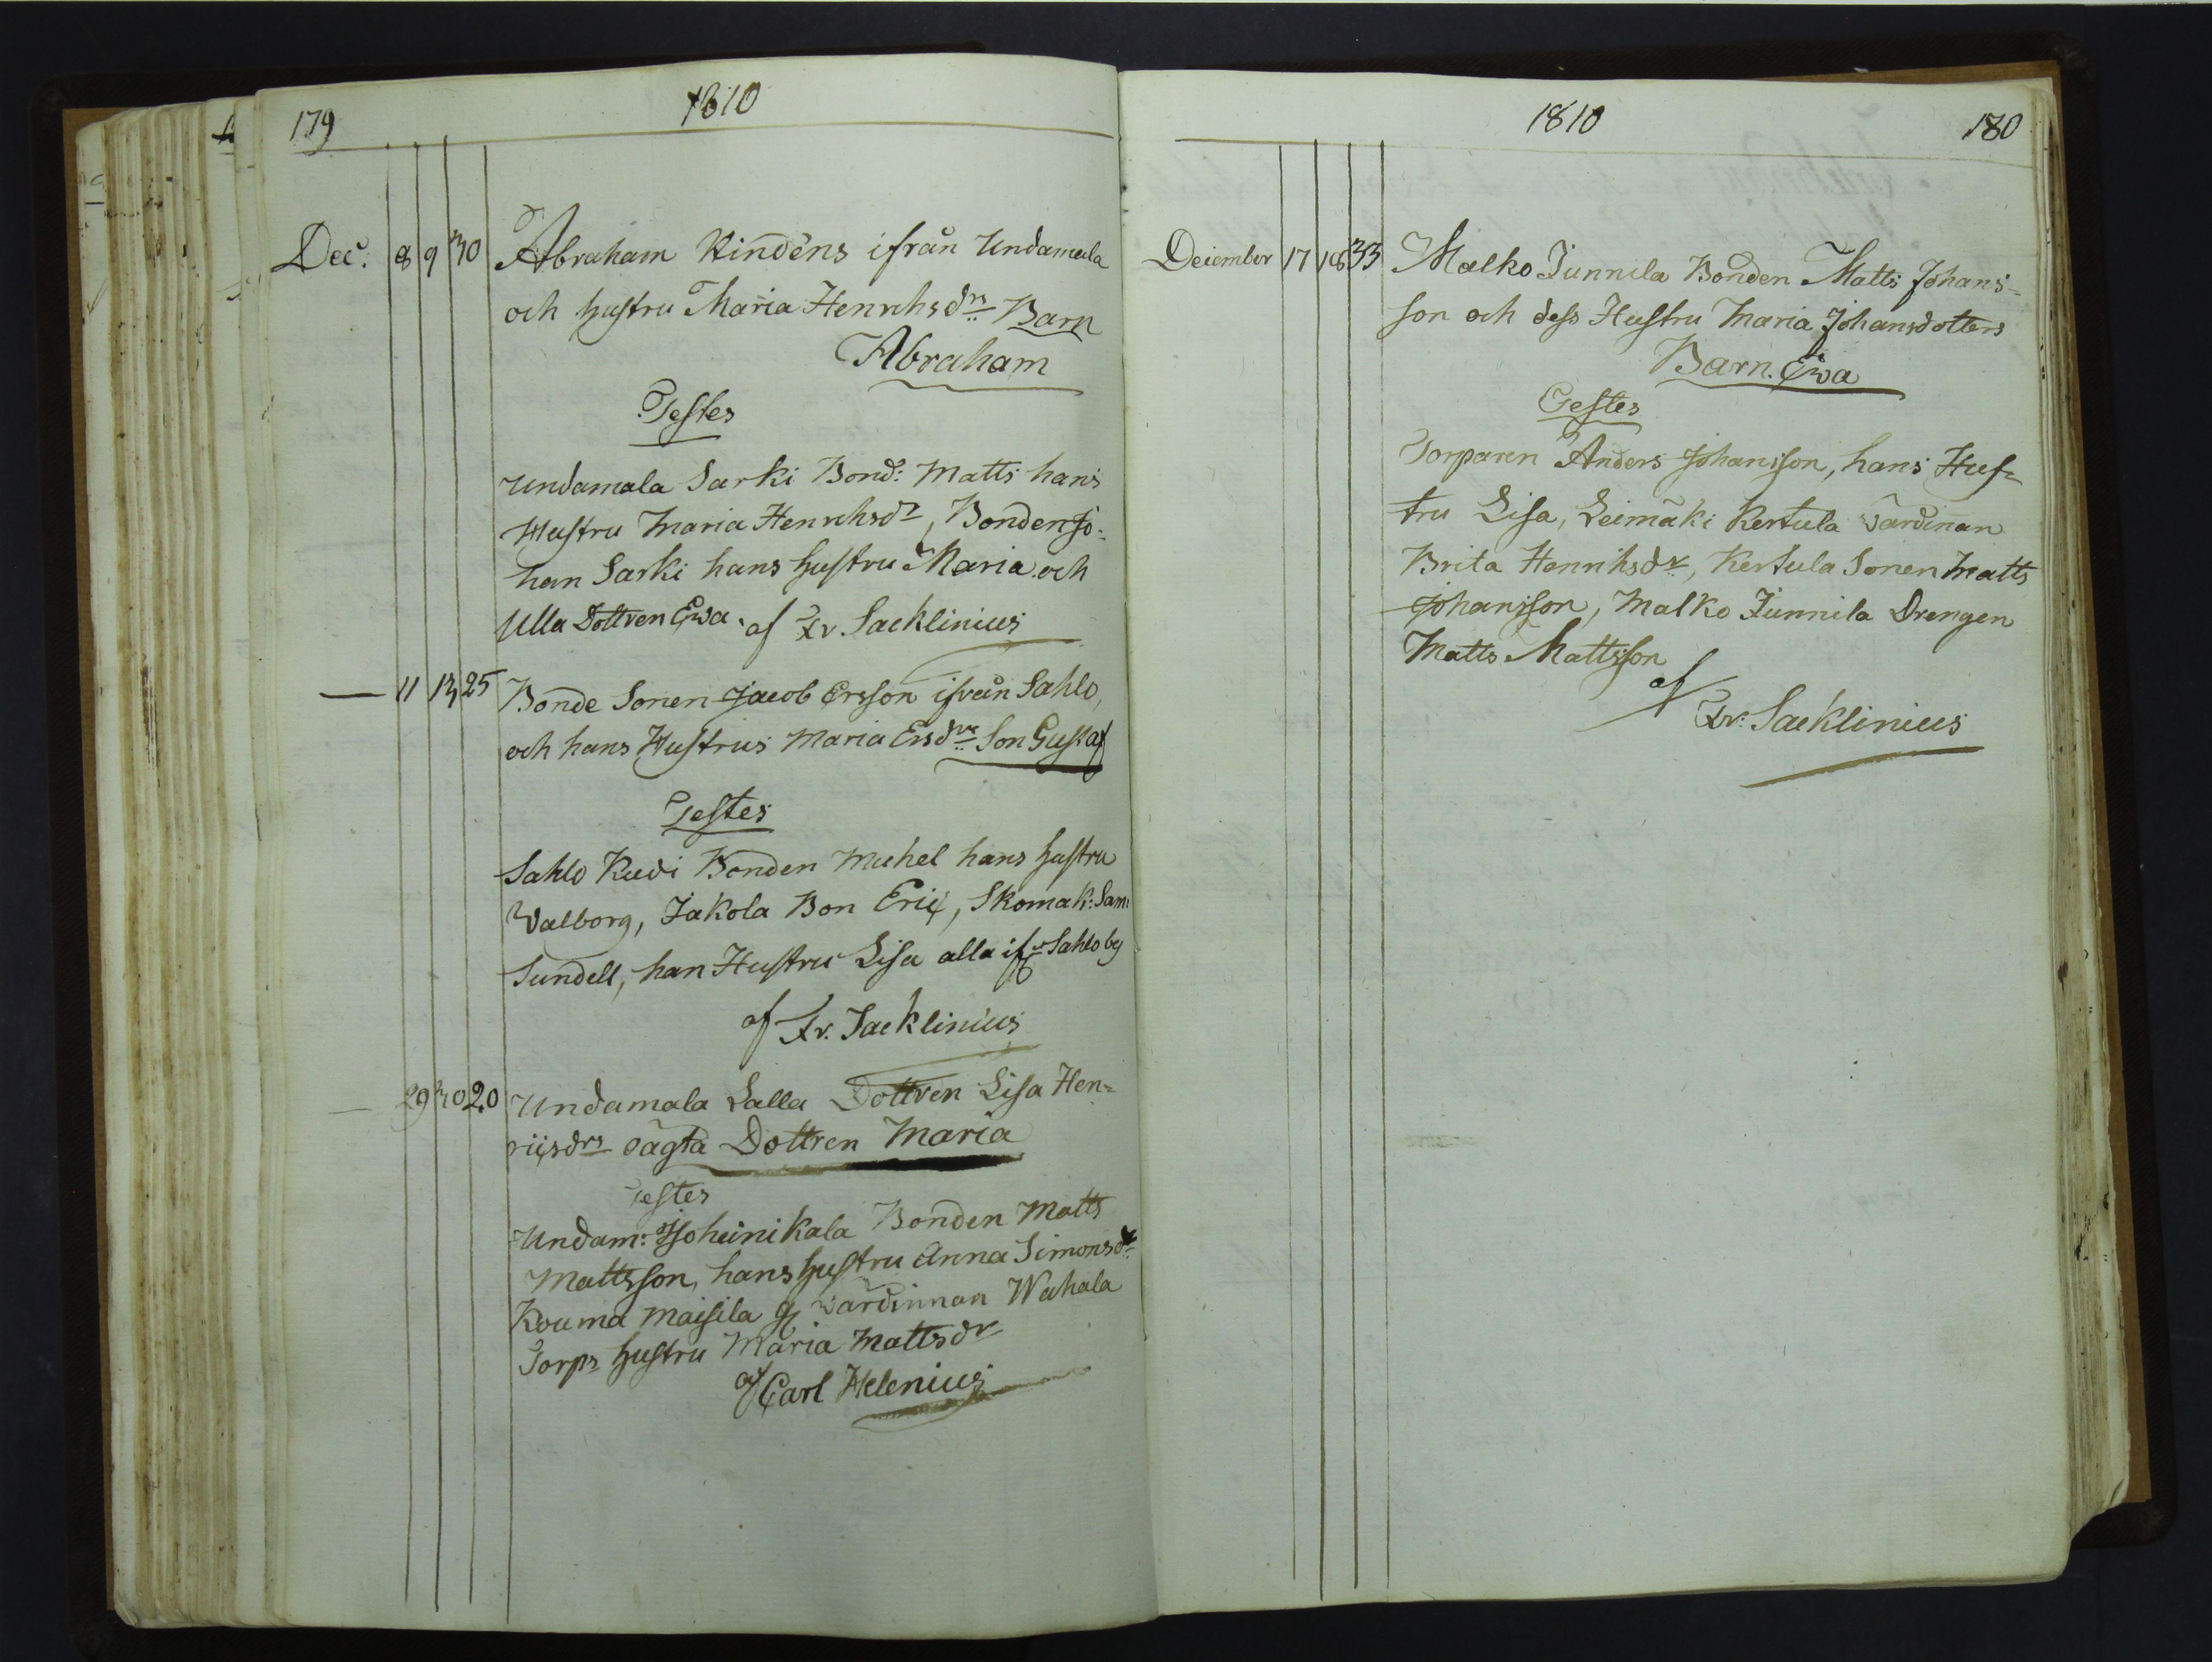 179
1810
Dec. 8 9 30 Abraham Kindéns ifrån Undamala
och hustru Maria Henrichsdrs Barn
Abraham
Testes
Undamala Sarki Bond: Matts hans
Hustru Maria Henrchsdr, Bonden Jo-
han Sarki hans hustru Maria och
Ulla Dottren Ewa. af Fr. Sacklinius
— 11 13 25 Bonde Sonen Jacob Ersson ifrån Sahlo,
och hans Hustrus Maria Ersdrs Son Gustaf
Testes
Sahlo Rudi Bonden Michel hans hustru
Walborg, Jakola Bon Eric, Skomak: Sam:
Sundell, han Hustru Lisa alla ifr Sahlo by
af Fr. Sacklinius
— 29 30 20 Undamala Lalla Dottren Lisa Hen-
ricsdrs oägta Dottren Maria
Testes
Undam: Isoheinikala Bonden Matts
Mattsson, hans hustru Anna Simonsdr
Kouma Maisila g wärdinnan Wahala
Torps hustru Maria Mattsdr
af Carl Helenius
1810
180
December 17 18 33 Malko Junnila Bonden Matts Johans-
son och dess Hustru Maria Johansdotters
Barn. Ewa
Testes
Torparen Anders Johansson, hans Hus-
tru Lisa, Leimäki Kertula wärdinan
Brita Henrihsdr, Kertula Sonen Matts
Johansson, Malko Junnila Drengen
Matts Mattsson
af
Fr. Sacklinius